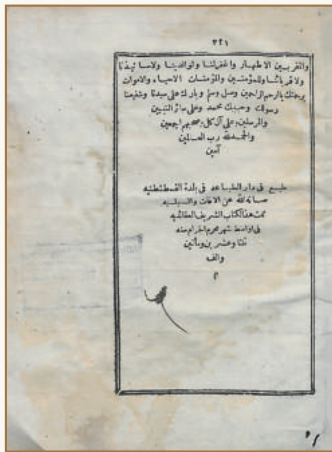 ٢٢١
والمقربين الاطهار واغفر لنا ولوالدينا ولاساتيذنا
ولاقربائنا وللمؤمنين والمؤمنات الاحياء والاموات
برحمتك يا ارحم الراحمين وصل وسلم وبارك على سيدنا وشفيعنا
رسولك وحبيبك محمد وعلى سائر النبيين
والمرسلين وعلى آل كل وصحبهم اجمعين
والحمد لله رب العالمين
آمين
طبع فى دار الطباعه فى بلدة القسطنطنيه
صانه الله عن الافات والبليه
تمت هذا الكتاب الشريف
فى اواسط شهر محرم الحرام سنه
ثلثا وعشرين ومأتين
والف
م